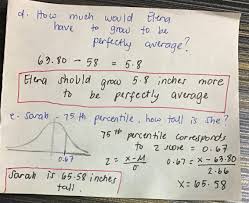 d. How much would Elena
have to grow to be
perfectly average?
63.80 - 58 = 5.8
Elena should grow 5.8 inches more
to be perfectly average
e. Sarah - 75th percentile, how tall is she?
75th percentile corresponds
to z score = 0.67
0.67
z = x-μ / σ 0.67 = x - 63.80 / 2.66
x = 65.58
Sarah is 65.58 inches
tall.